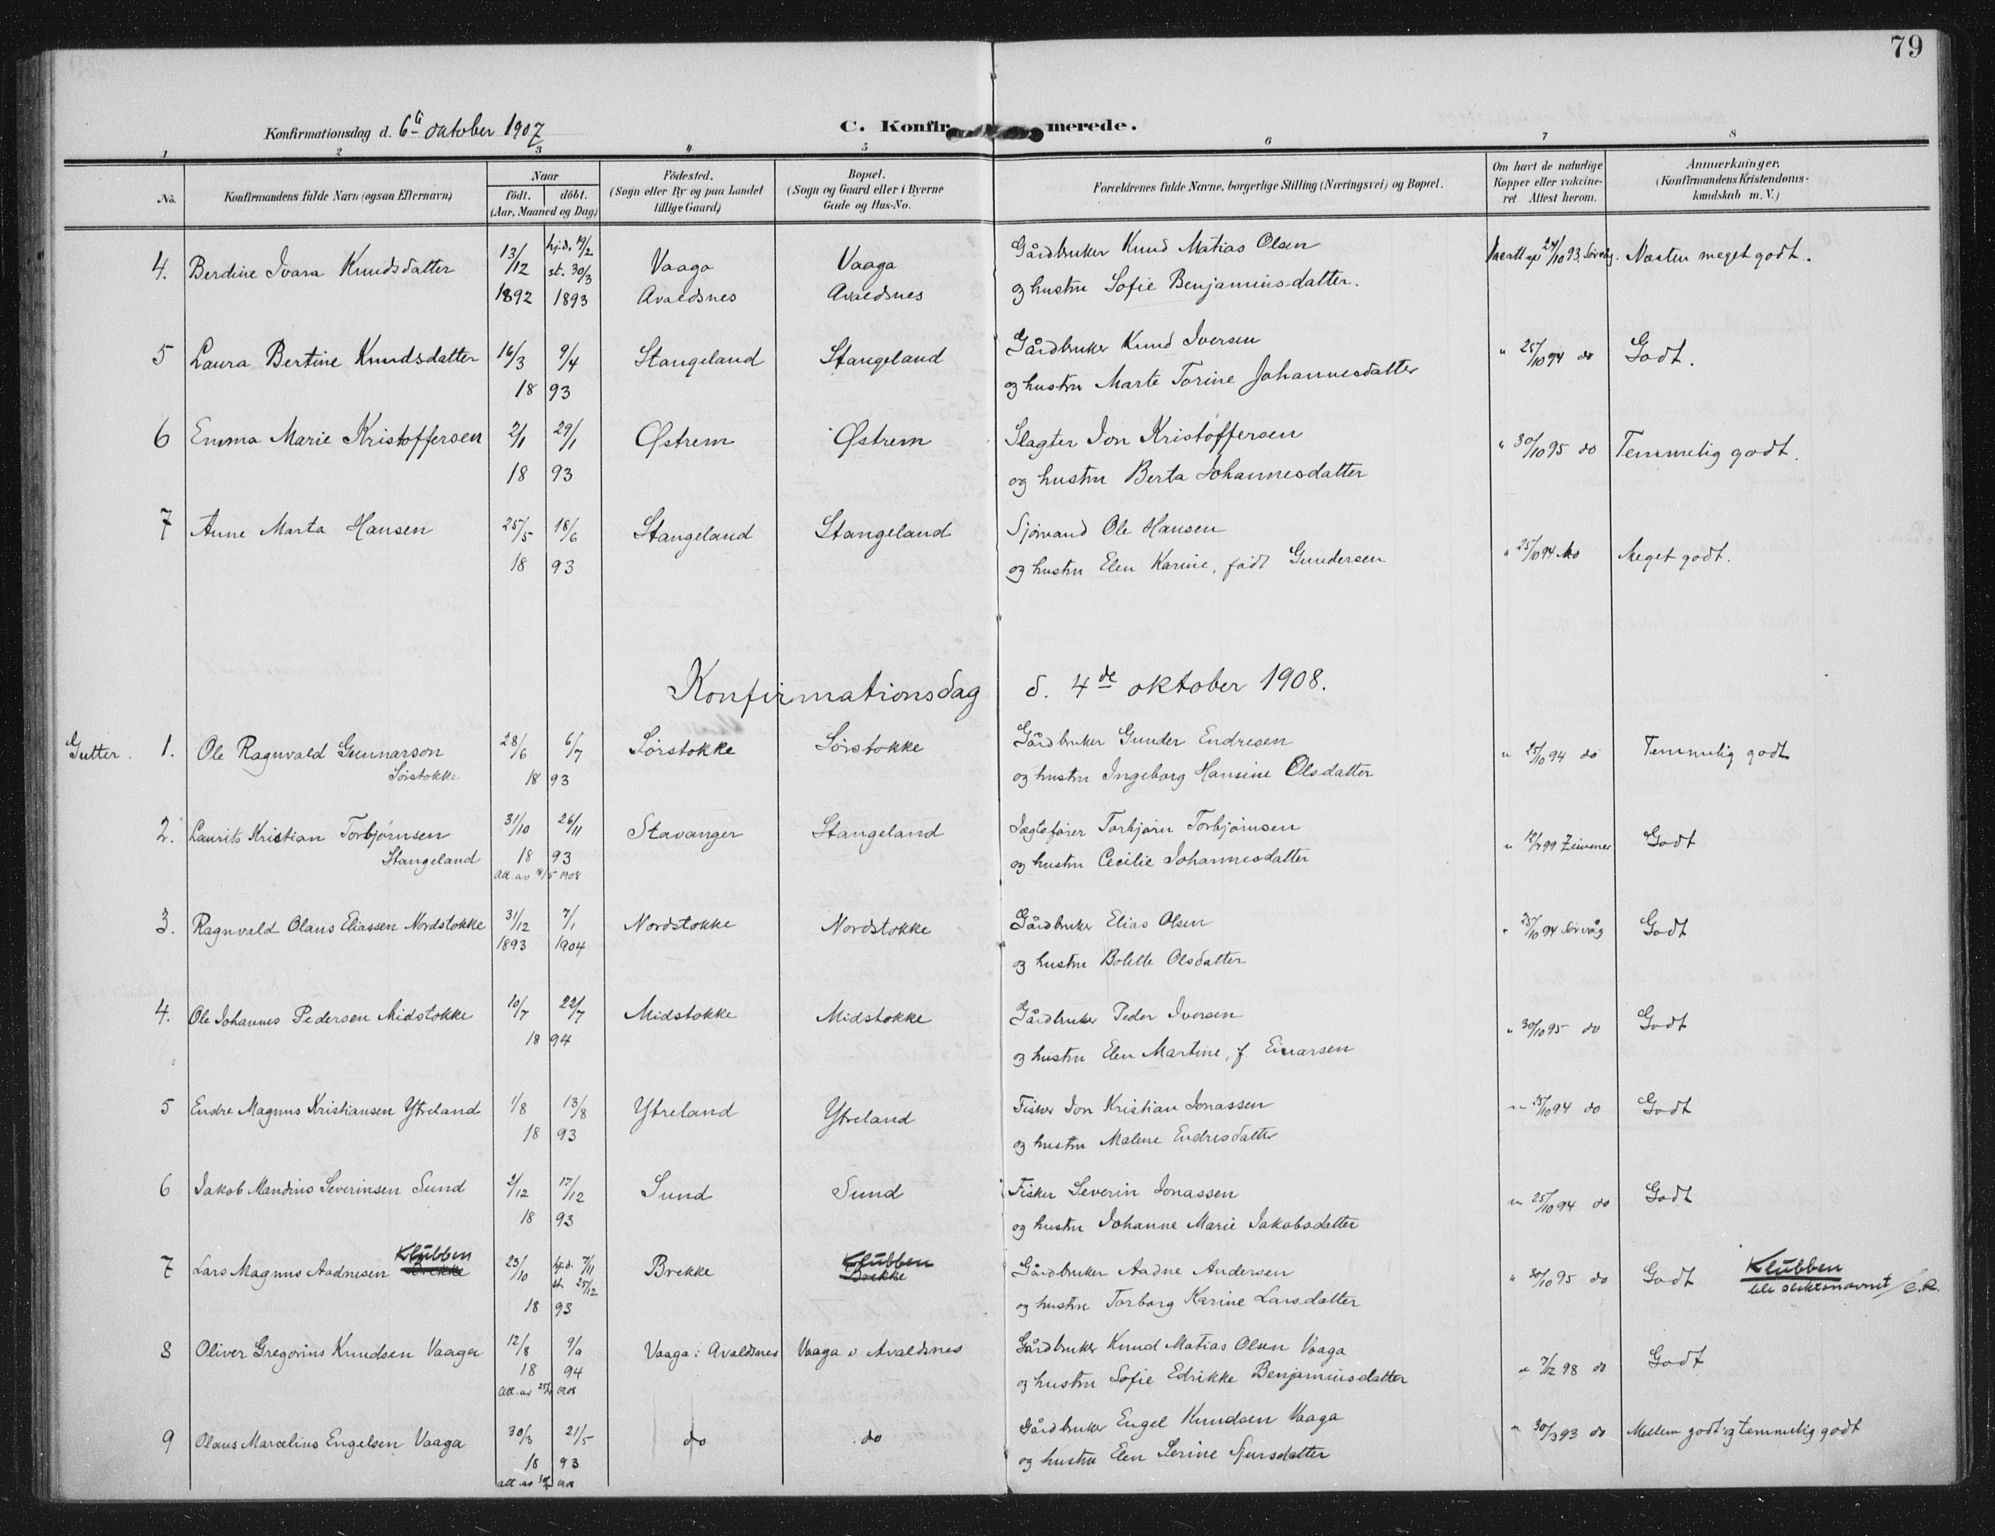 79
Konfirmationsdag d. 6te oktober 1907
C. Konfirmerede.
1 2 3 4 5 6 7 8
No.
Konfirmandens fulde Navn (ogsaa Efternavn)
Naar
født. döbt.
(Aar, Maaned og Dag)
Födested.
(Sogn eller By og paa Landet
tillige Gaard)
Bopæl.
(Sogn og Gaard eller i Byerne
Gade og Hus-No.
Forældrenes fulde Navne, borgerlige Stilling (Næringsvei) og Bopæl.
Om havt de naturlige
Kopper eller vakcine-
ret Attest herom.
Anmærkninger.
(Konfirmandens Kristendoms-
kundskab m. V.)
4. Berdine Ivara Knudsdatter 13/12 hj.d. 7/2 Vaaga Vaaga Gårdbruker Knud Matias Olsen 24/10 93 Næsten meget godt.
st. 30/3
1892 1893 Avaldsnes Avaldsnes og hustru Sofie Benjaminsdatter.
5 Laura Bertine Knudsdatter 16/3 9/4 Stangeland Stangeland Gårdbruker Knud Iversen " 25/10 94 do Godt.
18 93 og hustru Marte Torine Johannesdatter
6 Emma Marie Kristoffersen 2/1 29/1 Østrem Østrem Slagter Jon Kristoffersen " 30/10 95 do Temmelig godt.
18 93 og hustru Berta Johannesdatter
7 Anne Marta Hansen 25/5 18/6 Stangeland Stangeland Sjømand Ole Hansen " 25/10 94 do Meget godt.
18 93 og hustru Elen Karine, født Gundersen
Konfirmationsdag d. 4de oktober 1908.
Gutter. 1. Ole Ragnvald Gunnarson 28/6 6/7 Sørstokke Sørstokke Gårdbruker Gunder Endresen " 25/10 94 do Temmelig godt
Sørstokke 18 93 og hustru Ingeborg Hansine Olsdatter
2. Laurits Kristian Torbjørnsen 31/10 26/11 Stavanger Stangeland Jægtefører Torbjørn Torbjørnsen " 12/7 99 Zimmer Godt
Stangeland 18 93 og hustru Cecilie Johannesdatter
Att. av /5 1908
3. Ragnvald Olaus Eliassen Nordstokke 31/12 7/1 Nordstokke Nordstokke Gårdbruker Elias Olsen " 25/10 94 Sørvåg Godt
1893 1904 og hustru Bolette Olsdatter
4. Ole Johannes Pedersen Midstokke 10/7 22/7 Midstokke Midstokke Gårdbruker Peder Iversen " 30/10 95 do Godt
18 94 og hustru Elen Martine, f. Einarsen
5 Endre Magnus Kristiansen Ytreland 1/8 13/8 Ytreland Ytreland Fisker Jon Kristian Jonassen " 25/10 94 do Godt
18 93 og hustru Malene Endresdatter
6 Jakob Mandius Severinsen Sund 2/12 17/12 Sund Sund Fisker Severin Jonassen " 25/10 94 do Godt
18 93 og hustru Johanne Marie Jakobsdatter
Klubben Klubben
7 Lars Magnus Aadnesen Brekke 23/10 hj.d. 7/11 Brekke Brekke Gårdbruker Aadne Andersen " 30/10 95 do Godt Klubben
st. 25/12 blir slektsnavnet / C.R.
18 93 og hustru Torborg Karine Larsdatter
8 Oliver Gregorius Knudsen Vaaga 12/8 9/9 Vaaga i Avaldsnes Vaaga i Avaldsnes Gårdbruker Knud Matias Olsen Vaaga " 7/12 98 do Godt
18 94 og hustru Sofie Edrikke Benjaminsdatter
Att. av 1908
9 Olaus Marcelius Engelsen Vaaga 30/3 21/5 do do Gårdbruker Engel Knudsen Vaaga " 30/3 93 do Mellem godt og temmelig godt
18 93 og hustru Elen Serine Sjursdatter
att. av 1908